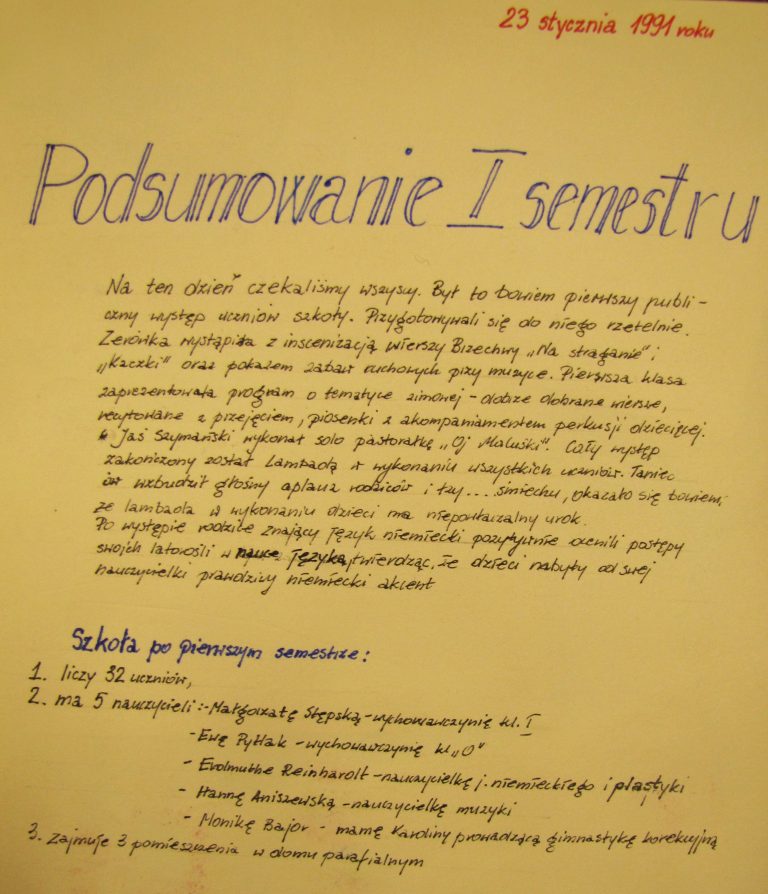 23 stycznia 1991 roku
Podsumowanie I semestru
Na ten dzień czekaliśmy wszyscy. Był to bowiem pierwszy publi-
czny występ uczniów szkoły. Przygotowywali się do niego rzetelnie.
Zerówka wystąpiła z inscenizacją wierszy Brzechwy „Na straganie" i
„Kaczki" oraz pokazem zabaw ruchowych przy muzyce. Pierwsza klasa
zaprezentowała program o tematyce zimowej - dobrze dobrane wiersze,
recytowane z przejęciem, piosenki z akompaniamentem perkusji dziecięcej.
Jaś Szymański wykonał solo pastorałkę „Oj Maluśki". Cały występ
zakończony został Lambadą w wykonaniu wszystkich uczniów. Taniec
ów wzbudził głośny aplauz rodziców i łzy... śmiechu, okazało się bowiem,
że lambada w wykonaniu dzieci ma niepowtarzalny urok.
Po występie rodzice znający język niemiecki pozytywnie ocenili postępy
swoich latorośli w nauce języka, twierdząc, że dzieci nabyły od swej
nauczycielki prawdziwy niemiecki akcent
Szkoła po pierwszym semestrze:
1. liczy 32 uczniów,
2. ma 5 nauczycieli:- Małgorzatę Stępską - wychowawczynię kl. I
- Ewę Pytlak - wychowawczynię kl „0"
- Reinhardt - nauczycielkę j. niemieckiego i plastyki
- Hannę Aniszewską - nauczycielkę muzyki
- Monikę Bajor - mamę Karoliny prowadzącą gimnastykę korekcyjną
3. Zajmuje 3 pomieszczenia w domu parafialnym